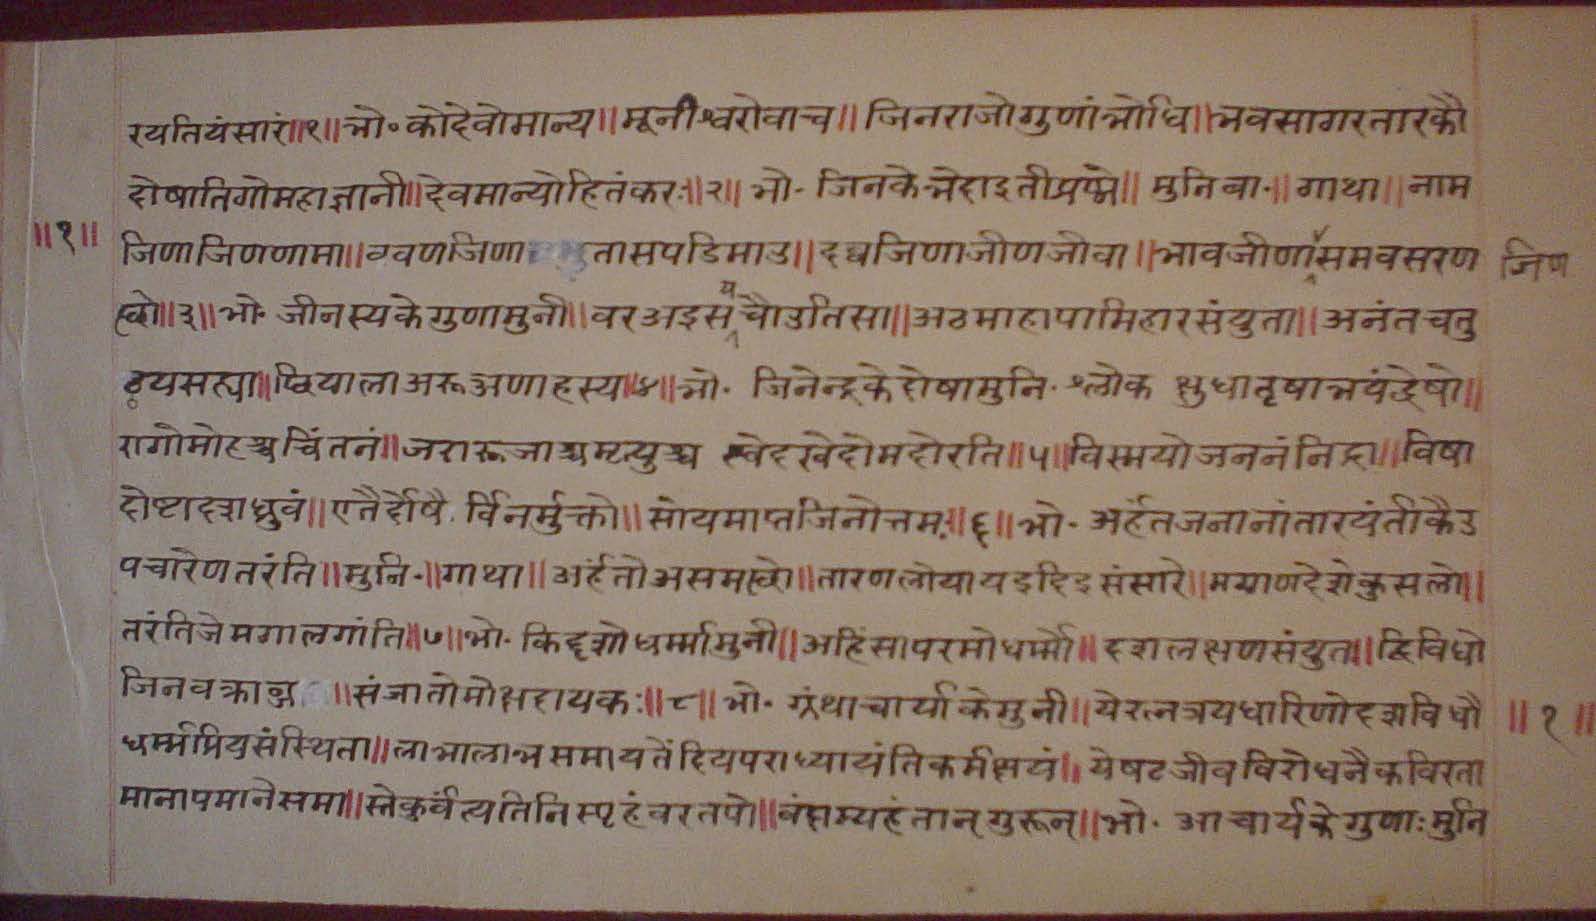 रयतियंसारं॥१॥भो॰कोदेवोमान्य॥मूनीश्वरोवाच॥जिनराजोगुणांभोधि॥भवसागरतारकौ
दोषातिगोमहाज्ञानी॥देवमान्योहितंकरः॥२॥भो॰जिनकेभेदाइतीप्रष्णे॥मुनिवा॰॥गाथा॥नाम
॥१॥ जिणाजिणणामा॥ठवणजिणा तासपडिमाउ॥दव्वजिणाजीणजीवा॥भावजीणासमवसरण जिण
छो॥३॥भो॰जीनस्यकेगुणामुनी॥वरअइसयचौउतिसा॥अठमाहापामिहारसंयुता॥अनंतचतु
ठयसत्या॥छियालाअरूअणाहस्य॥४॥भो॰जिनेन्द्रकेदोषामुनि॰श्लोक क्षुधातृषाभयंद्वेषो॥
रागोमोहश्चचिंतनं॥जरारूजाश्चमृत्युश्च स्वेदखेदोमदोरति॥५॥विस्मयोजननंनिद्रा॥विषा
दोष्टादशध्रुवं॥एतैर्दोषै र्विनर्मुक्तो॥सोयमाप्तजिनोत्तमः॥६॥भो॰अर्हतजनानांतारयंतीकैउ
पचारेणतरंति॥मुनि॰॥गाथा॥अर्हतोअसमछो॥तारणलोयायइदिइसंसारे॥मग्गाणदेशेकुसलो॥
तरंतिजेमगालगांति॥७॥भो॰किदृशोधर्म्मामुनी॥अहिंसापरमोधर्म्मो॥दशलक्षणसंयुत॥द्विविधो
जिनवक्राब्ज॥संजातोमोक्षदायकः॥८॥भो॰ग्रंथाचार्याकेमुनी॥येरत्नत्रयधारिणोदशविधौ ॥१॥
धर्म्मप्रियसंस्थिता॥लाभालाभसमायतेंद्रियपराध्यायंतिकर्मक्षयं॥येषटजीवविरोधनैकविरता
मानापमानेसमा॥स्तेकुर्वंत्यतिनिस्पृहंवरतपो॥वंद्याम्यहंतान्गुरून्॥भो॰आचार्यकेगुणाःमुनि